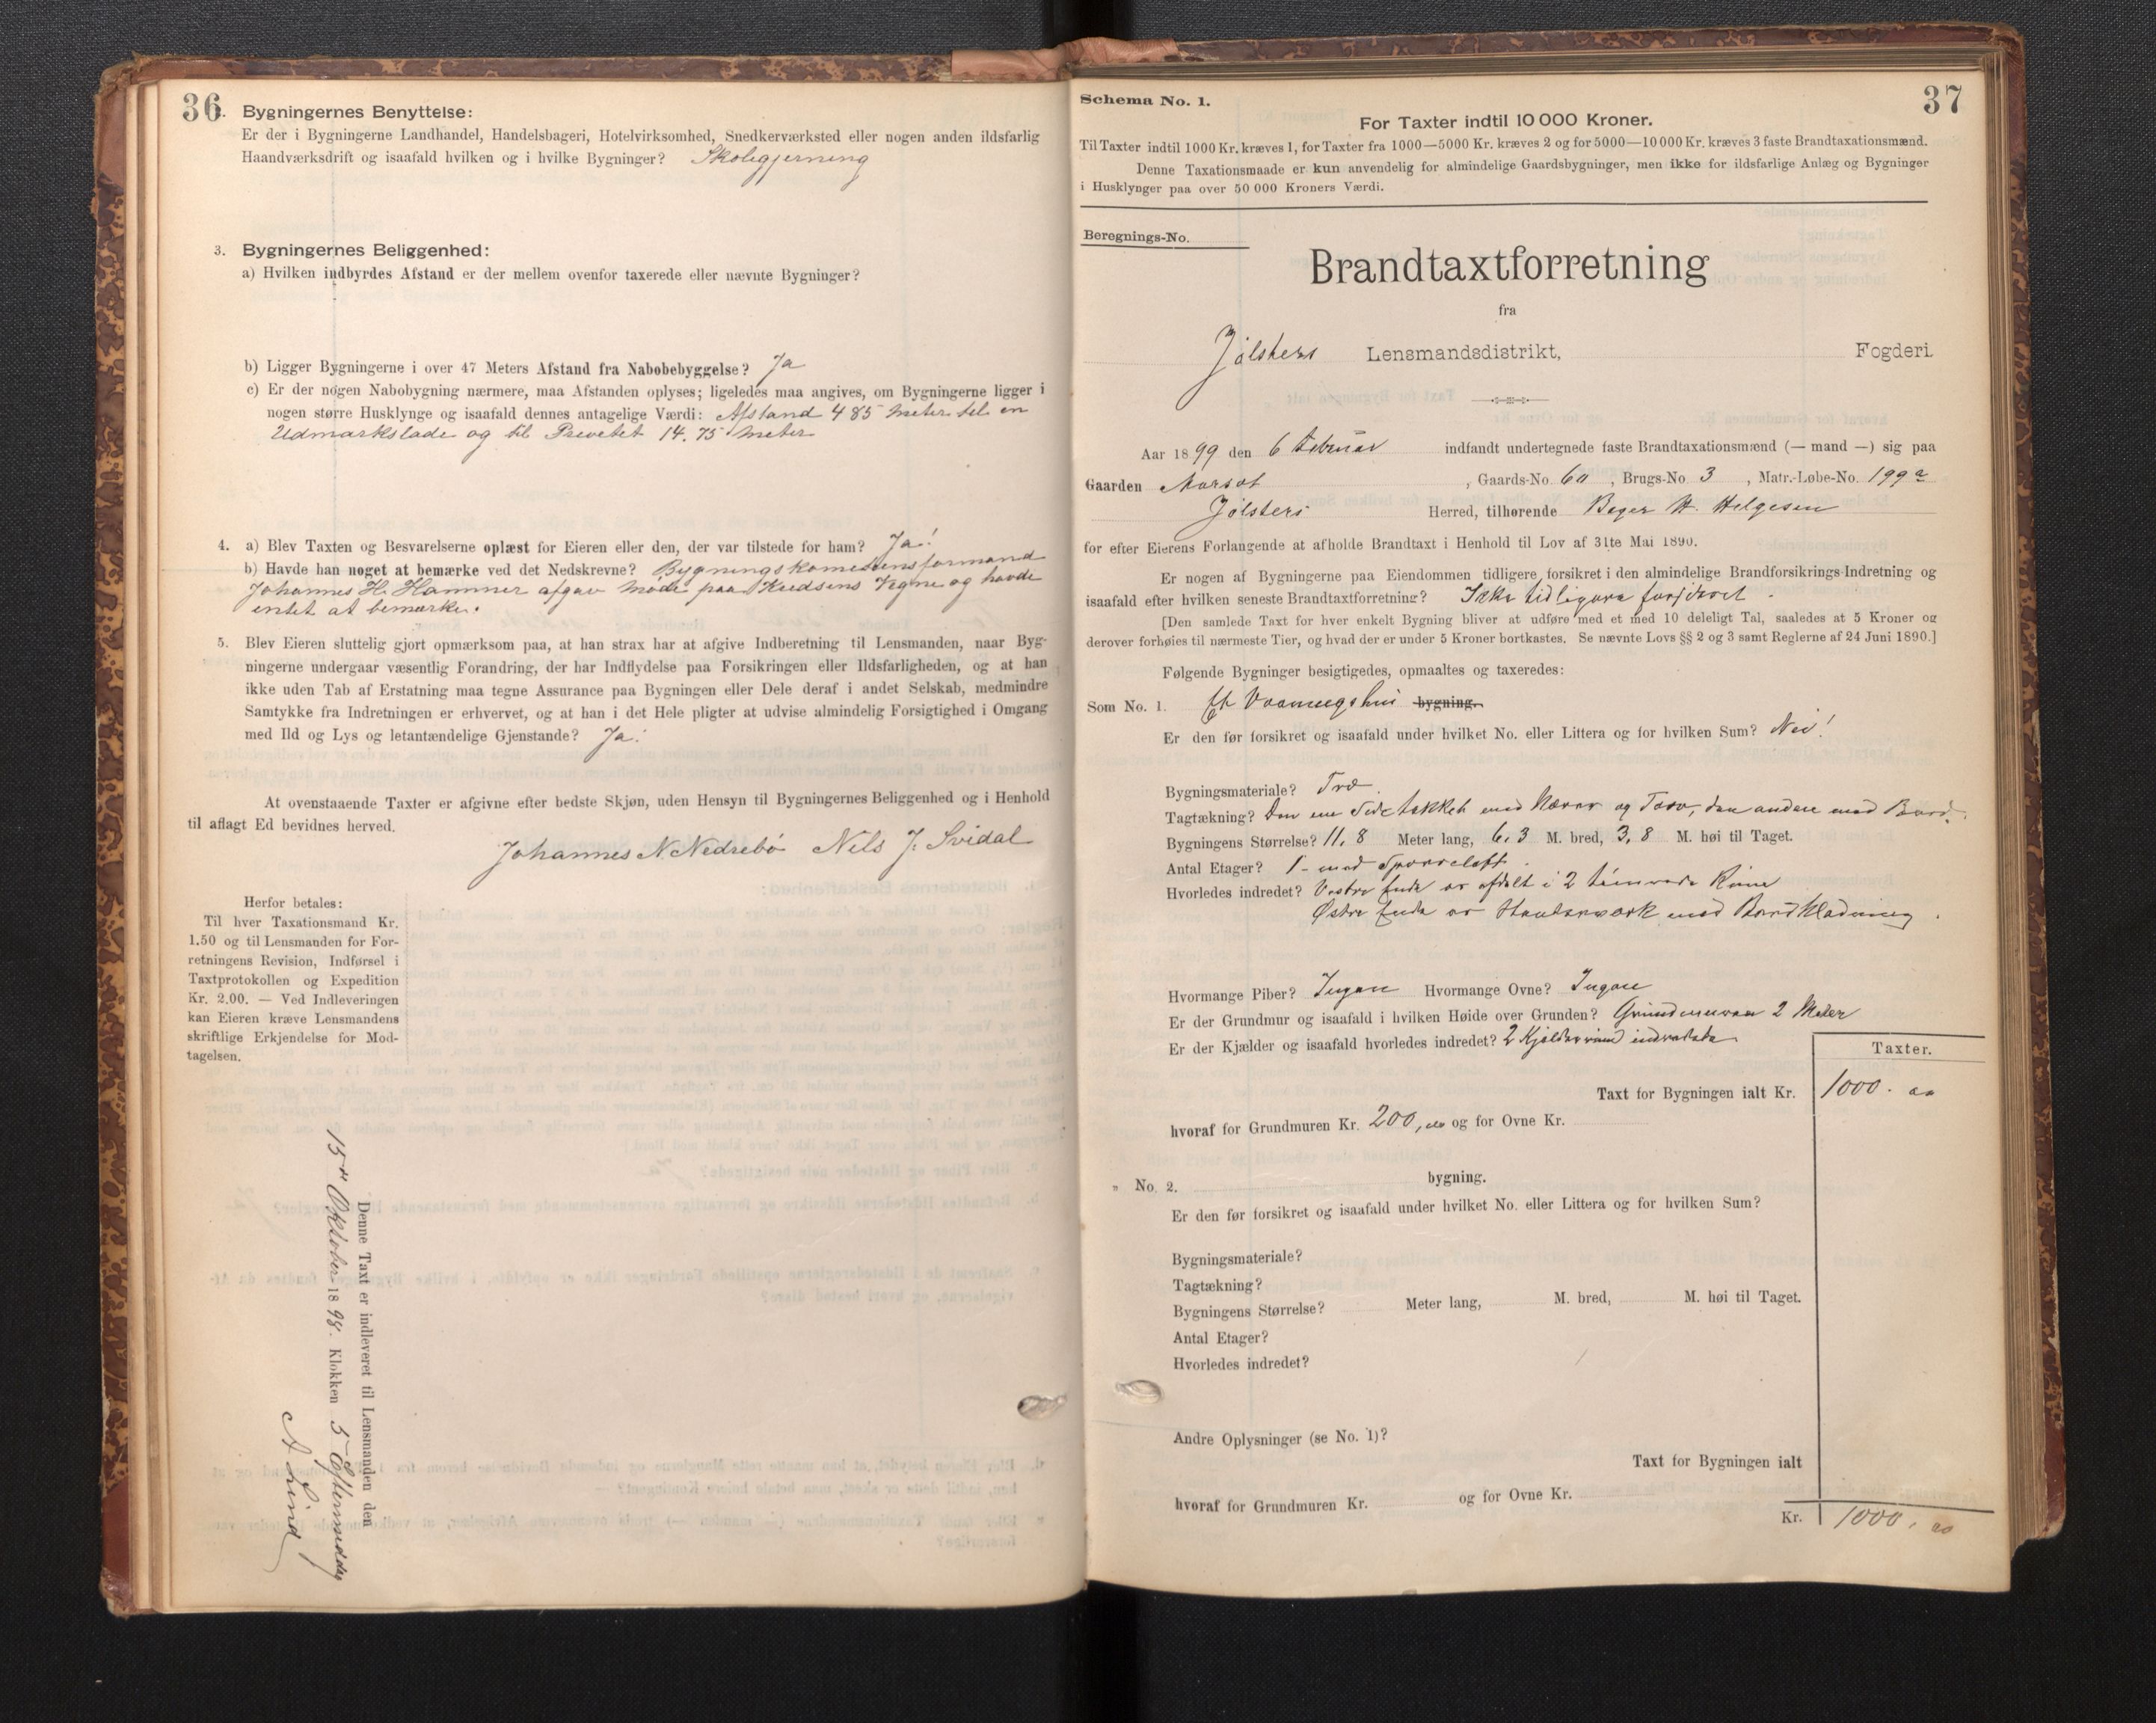 36
2. Bygningernes Benyttelse:
Er der i Bygningerne Landhandel, Handelsbageri, Hotelvirksomhed, Snedkerværksted eller nogen anden ildsfarlig
Haandværksdrift og isaafald hvilken og i hvilke Bygninger? Skolegjerning
3. Bygningernes Beliggenhed:
a) Hvilken indbyrdes Afstand er der mellem ovenfor taxerede eller nævnte Bygninger?
b) Ligger Bygningerne i over 47 Meters Afstand fra Nabobebyggelse? Ja
c) Er der nogen Nabobygning nærmere, maa Afstanden oplyses; ligeledes maa angives, om Bygningerne ligger i
nogen større Husklynge og isaafald dennes antagelige Værdi: Afstand 485 meter til en
Udmarkslade og til Prevetet 14.75 meter
4. a) Blev Taxten og Besvarelserne oplæst for Eieren eller den, der var tilstede for ham? Ja!
b) Havde han noget at bemærke ved det Nedskrevne? Bygningskomesiensformand
Johannes H. Hammer afgav møde paa Kredsens Vegne og havde
entet at bemærke.
5. Blev Eieren sluttelig gjort opmærksom paa, at han strax har at afgive Indberetning til Lensmanden, naar Byg-
ningerne undergaar væsentlig Forandring, der har Indflydelse paa Forsikringen eller Ildsfarligheden, og at han
ikke uden Tab af Erstatning maa tegne Assurance paa Bygningen eller Dele deraf i andet Selskab, medmindre
Samtykke fra Indretningen er erhvervet, og at han i det Hele pligter at udvise almindelig Forsigtighed i Omgang
med Ild og Lys og letantændelige Gjenstande? Ja!
At ovenstaaende Taxter er afgivne efter bedste Skjøn, uden Hensyn til Bygningernes Beliggenhed og i Henhold
til aflagt Ed bevidnes herved.
Johannes N. Nedrebø Nils J. Svidal
Herfor betales:
Til hver Taxationsmand Kr.
1.50 og til Lensmanden for For-
retningens Revision, Indførsel i
Taxtprotokollen og Expedition
Kr. 2.00. — Ved Indleveringen
kan Eieren kræve Lensmandens
skriftlige Erkjendelse for Mod-
tagelsen.
Denne Taxt er indleveret til Lensmanden den
15de Oktober 1898. Klokken 5 Eftermiddag
A Lind
37
Schema No. 1.
For Taxter indtil 10 000 Kroner.
Til Taxter indtil 1000 Kr. kræves 1, for Taxter fra 1000—5000 Kr. kræves 2 og for 5000—10 000 Kr. kræves 3 faste Brandtaxationsmænd.
Denne Taxationsmaade er kun anvendelig for almindelige Gaardsbygninger, men ikke for ildsfarlige Anlæg og Bygninger
i Husklynger paa over 50 000 Kroners Værdi.
Beregnings-No.
Brandtaxtforretning
fra
Jølsters Lensmandsdistrikt, Fogderi.
Aar 1899 den 6 Februar indfandt undertegnede faste Brandtaxationsmænd (— mand —) sig paa
Gaarden , Gaards-No. 60, Brugs-No. 3, Matr.-Løbe-No. 199a
Jølsters Herred, tilhørende H. Helgesen
for efter Eierens Forlangende at afholde Brandtaxt i Henhold til Lov af 31te Mai 1890.
Er nogen af Bygningerne paa Eiendommen tidligere forsikret i den almindelige Brandforsikrings-Indretning og
isaafald efter hvilken seneste Brandtaxtforretning? Ikke tidligere forsikret.
[Den samlede Taxt for hver enkelt Bygning bliver at udføre med et med 10 deleligt Tal, saaledes at 5 Kroner og
derover forhøies til nærmeste Tier, og hvad der er under 5 Kroner bortkastes. Se nævnte Lovs §§ 2 og 3 samt Reglerne af 24 Juni 1890.]
Følgende Bygninger besigtigedes, opmaaltes og taxeredes:
Som No. 1. Et Vaaningshus bygning.
Er den før forsikret og isaafald under hvilket No. eller Littera og for hvilken Sum? Nei!
Bygningsmateriale? Træ.
Tagtækning? Den ene Side tækket med Næver og Torv, den anden med Bord.
Bygningens Størrelse? 11,8 Meter lang, 6,3 M. bred, 3,8 M. høi til Taget.
Antal Etager? 1 - med Sperreloft.
Hvorledes indredet? Vestre Ende er afdelt i 2 tømrede Rum
Østre Ende er Stavverværk med Bordklædning.
Hvormange Piber? Ingen Hvormange Ovne? Ingen
Er der Grundmur og isaafald i hvilken Høide over Grunden? Grundmuren 2 Meter
Er der Kjælder og isaafald hvorledes indredet? 2 Kjelderrum indredede
Taxter.
Taxt for Bygningen ialt Kr. 1000. 00
hvoraf for Grundmuren Kr. 200,00 og for Ovne Kr.
" No. 2. bygning.
Er den før forsikret og isaafald under hvilket No. eller Littera og for hvilken Sum?
Bygningsmateriale?
Tagtækning?
Bygningens Størrelse? Meter lang, M. bred, M. høi til Taget.
Antal Etager?
Hvorledes indredet?
Andre Oplysninger (se No. 1)?
Taxt for Bygningen ialt
hvoraf for Grundmuren Kr. og for Ovne Kr.
Kr. 1000, 00